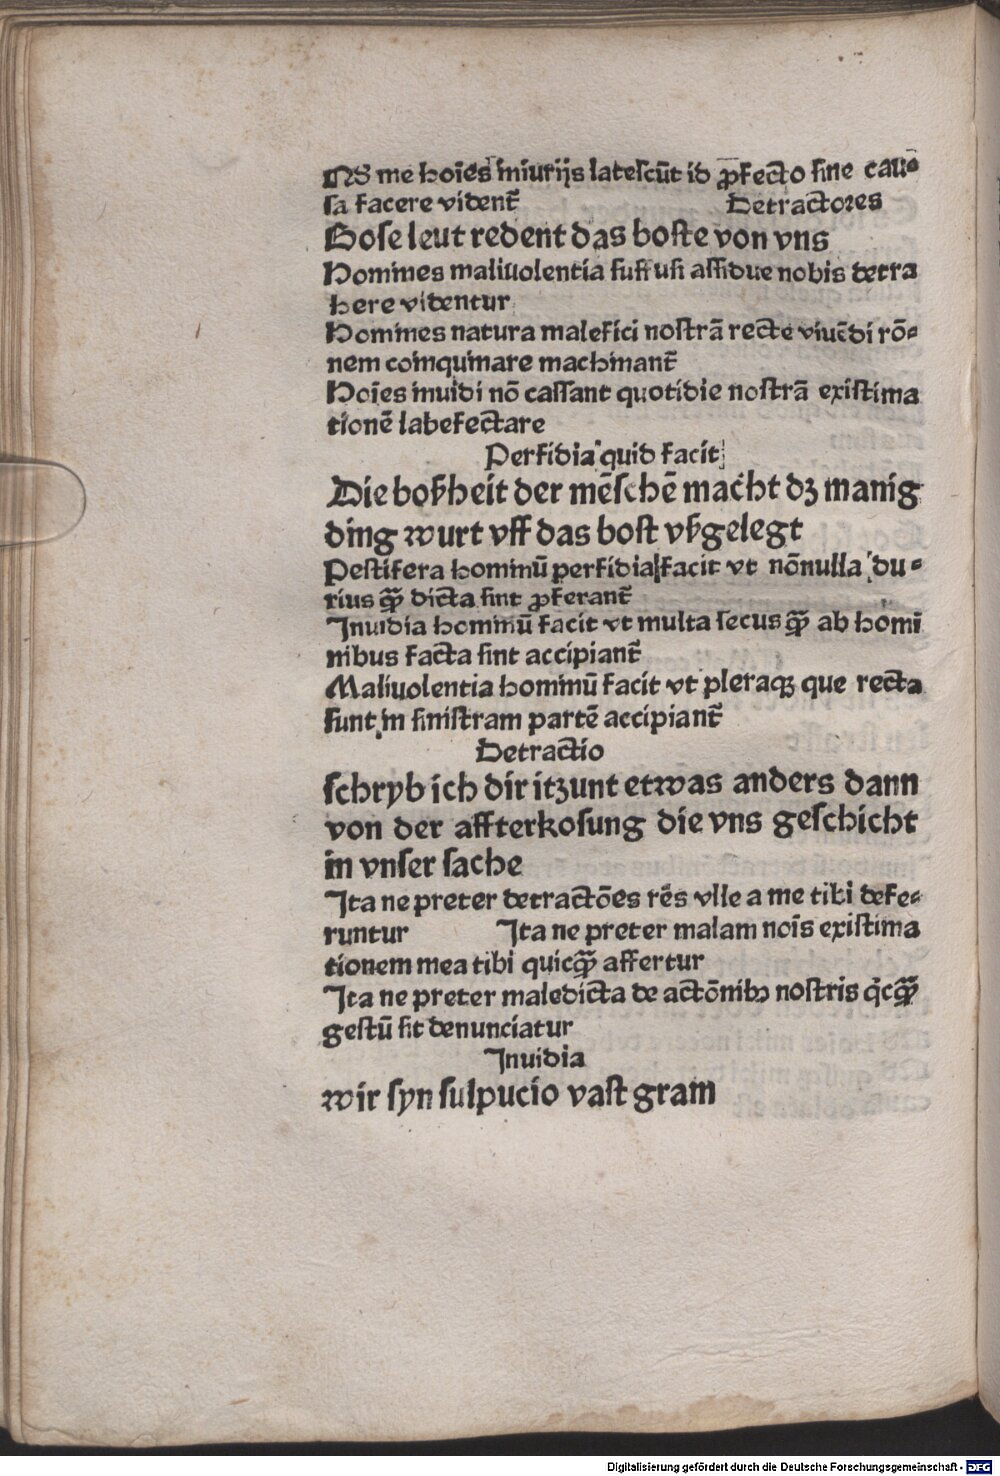 NS me hoīes iniurijs latescūt id ꝓfecto sine cau⸗
sa facere vident᷑ Detractores
Bose leut redent das boste von vns
Homines maliuolentia suffusi assidue nobis detra
here videntur
Homines natura malefici nostrā recte viuēdi rō⸗
nem coinquinare machinant᷑
Hoīes inuidi nō cassant quotidie nostrā existima
tionē labefectare
Perfidia quid facit
Die boßheit der mēschē macht dz manig
ding wurt vff das bost vßgelegt
Pestifera hominū perfidia facit vt nōnulla du⸗
rius ꝙ̄ dicta sint ꝓferant᷑
Inuidia hominū facit vt multa secus ꝙ̄ ab homi
nibus facta sint accipiant᷑
Maliuolentia hominū facit vt pleraqꝫ que recta
sunt in sinistram partē accipiant᷑
Detractio
schryb ich dir itzunt etwas anders dann
von der affterkosung die vns geschicht
in vnser sache
Ita ne preter detractōes rēs vlle a me tibi defe⸗
runtur Ita ne preter malam noīs existima
tionem mea tibi quicꝙ̄ affertur
Ita ne preter maledicta de actōnibꝫ nostris qͥcꝙ̄
gestū sit denunciatur
Inuidia
wir syn sulpucio vast gram
Digitalisierung gefördert durch die Deutsche Forschungsgemeinschaft - DFG